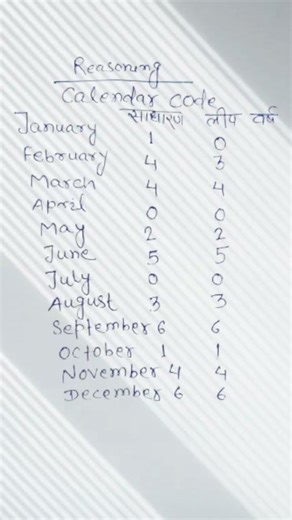 Reasoning
Calendar code
साधारण लीप वर्ष
January 1 0
February 4 3
March 4 4
April 0 0
May 2 2
June 5 5
July 0 0
August 3 3
September 6 6
October 1 1
November 4 4
December 6 6